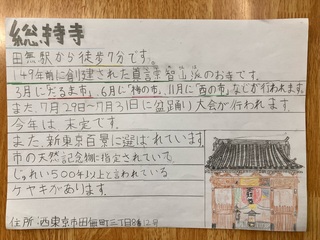 総持寺
田無駅から徒歩7分です。
149年前に創建された真言宗智山派のお寺です。
3月に「だるま市」、6月に「柿の市」、11月に「酉の市」などが行われます。
また7月29日〜7月31日に盆踊り大会が行われます
今年は未定です。
また、新東京百景に選ばれています
市の天然記念物に指定されていて
じゅれい500年以上と言われている
ケヤキがあります。
住所:西東京市田無町三丁目8番12号